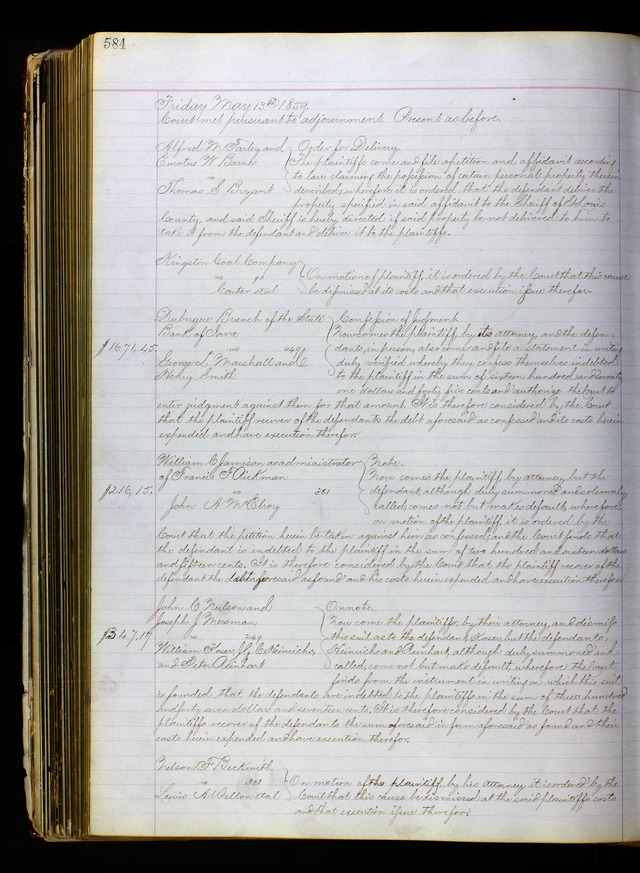 584
Friday May 13th 1859.
Court met pursuant to adjournment Present as before.
Alfred M. Farley and Order for Delivery
W. Barnes The plaintiffs come and file a petition and affidavit according
vs to law claiming the possession of certain personal property therein
Thomas S. Bryant described, wherefore it is ordered that the defendant deliver the
property specified in said affidavit to the Sheriff of St. Louis
County, and said Sheriff is hereby directed if said property be not delivered to him to
take it from the defendant and deliver it to the plaintiffs.
Kingston Coal Company
vs 90 On motion of plaintiff, it is ordered by the Court that this cause
Carter et al be dismissed at its costs and that execution issue therefor.
Dubuque Branch of the State Confession of Judgment
Bank of Iowa Now comes the plaintiff by its attorney, and the defen-
$1671.45. vs dants, in person, also come and file a statement in writing
George L. Marshall and duly verified whereby they confess themselves indebted
Henry Smith to the plaintiff in the sum of sixteen hundred and seventy
one dollars and forty five cents and authorize the Court to
enter judgment against them for that amount. It is therefore considered by the Court
that the plaintiff recover of the defendants the debt aforesaid as confessed and its costs herein
expended and have execution therefor.
William C. Jamison as administrator Note.
of Francis F. Dickman Now comes the plaintiff by attorney, but the
$216.15. vs 381 defendant, although duly summoned and solemnly
John A. McElroy called, comes not but makes default, wherefore,
on motion of the plaintiff it is ordered by the
Court that the petition herein be taken against him as confessed; and the Court finds that
the defendant is indebted to the plaintiff in the sum of two hundred and sixteen dollars
and fifteen cents. It is therefore considered by the Court that the plaintiff recover of the
defendant the debt aforesaid as found and his costs herein expended and have execution therefor.
John C. Nulsen and On note.
Joseph J. Mersman Now come the plaintiffs, by their attorney, and dismiss
$347.17 vs 249 this suit as to the defendant but the defendants,
William Heinrichs, Heinrichs and Reinhart, although duly summoned and
and Peter Reinhart called, come not but make default, wherefore the Court
finds from the instrument in writing on which this suit
is founded that the defendants are indebted to the plaintiffs in the sum of three hundred
and forty seven dollars and seventeen cents. It is therefore considered by the Court that the
plaintiffs recover of the defendants the sum aforesaid in form aforesaid as found and their
costs herein expended and have execution therefor.
Nelson F. Beckwith
vs 391 On motion of the plaintiff, by his attorney it is ordered by the
Lewis A. Welton et al Court that this cause be dismissed at the said plaintiffs costs
and that execution issue therefor.